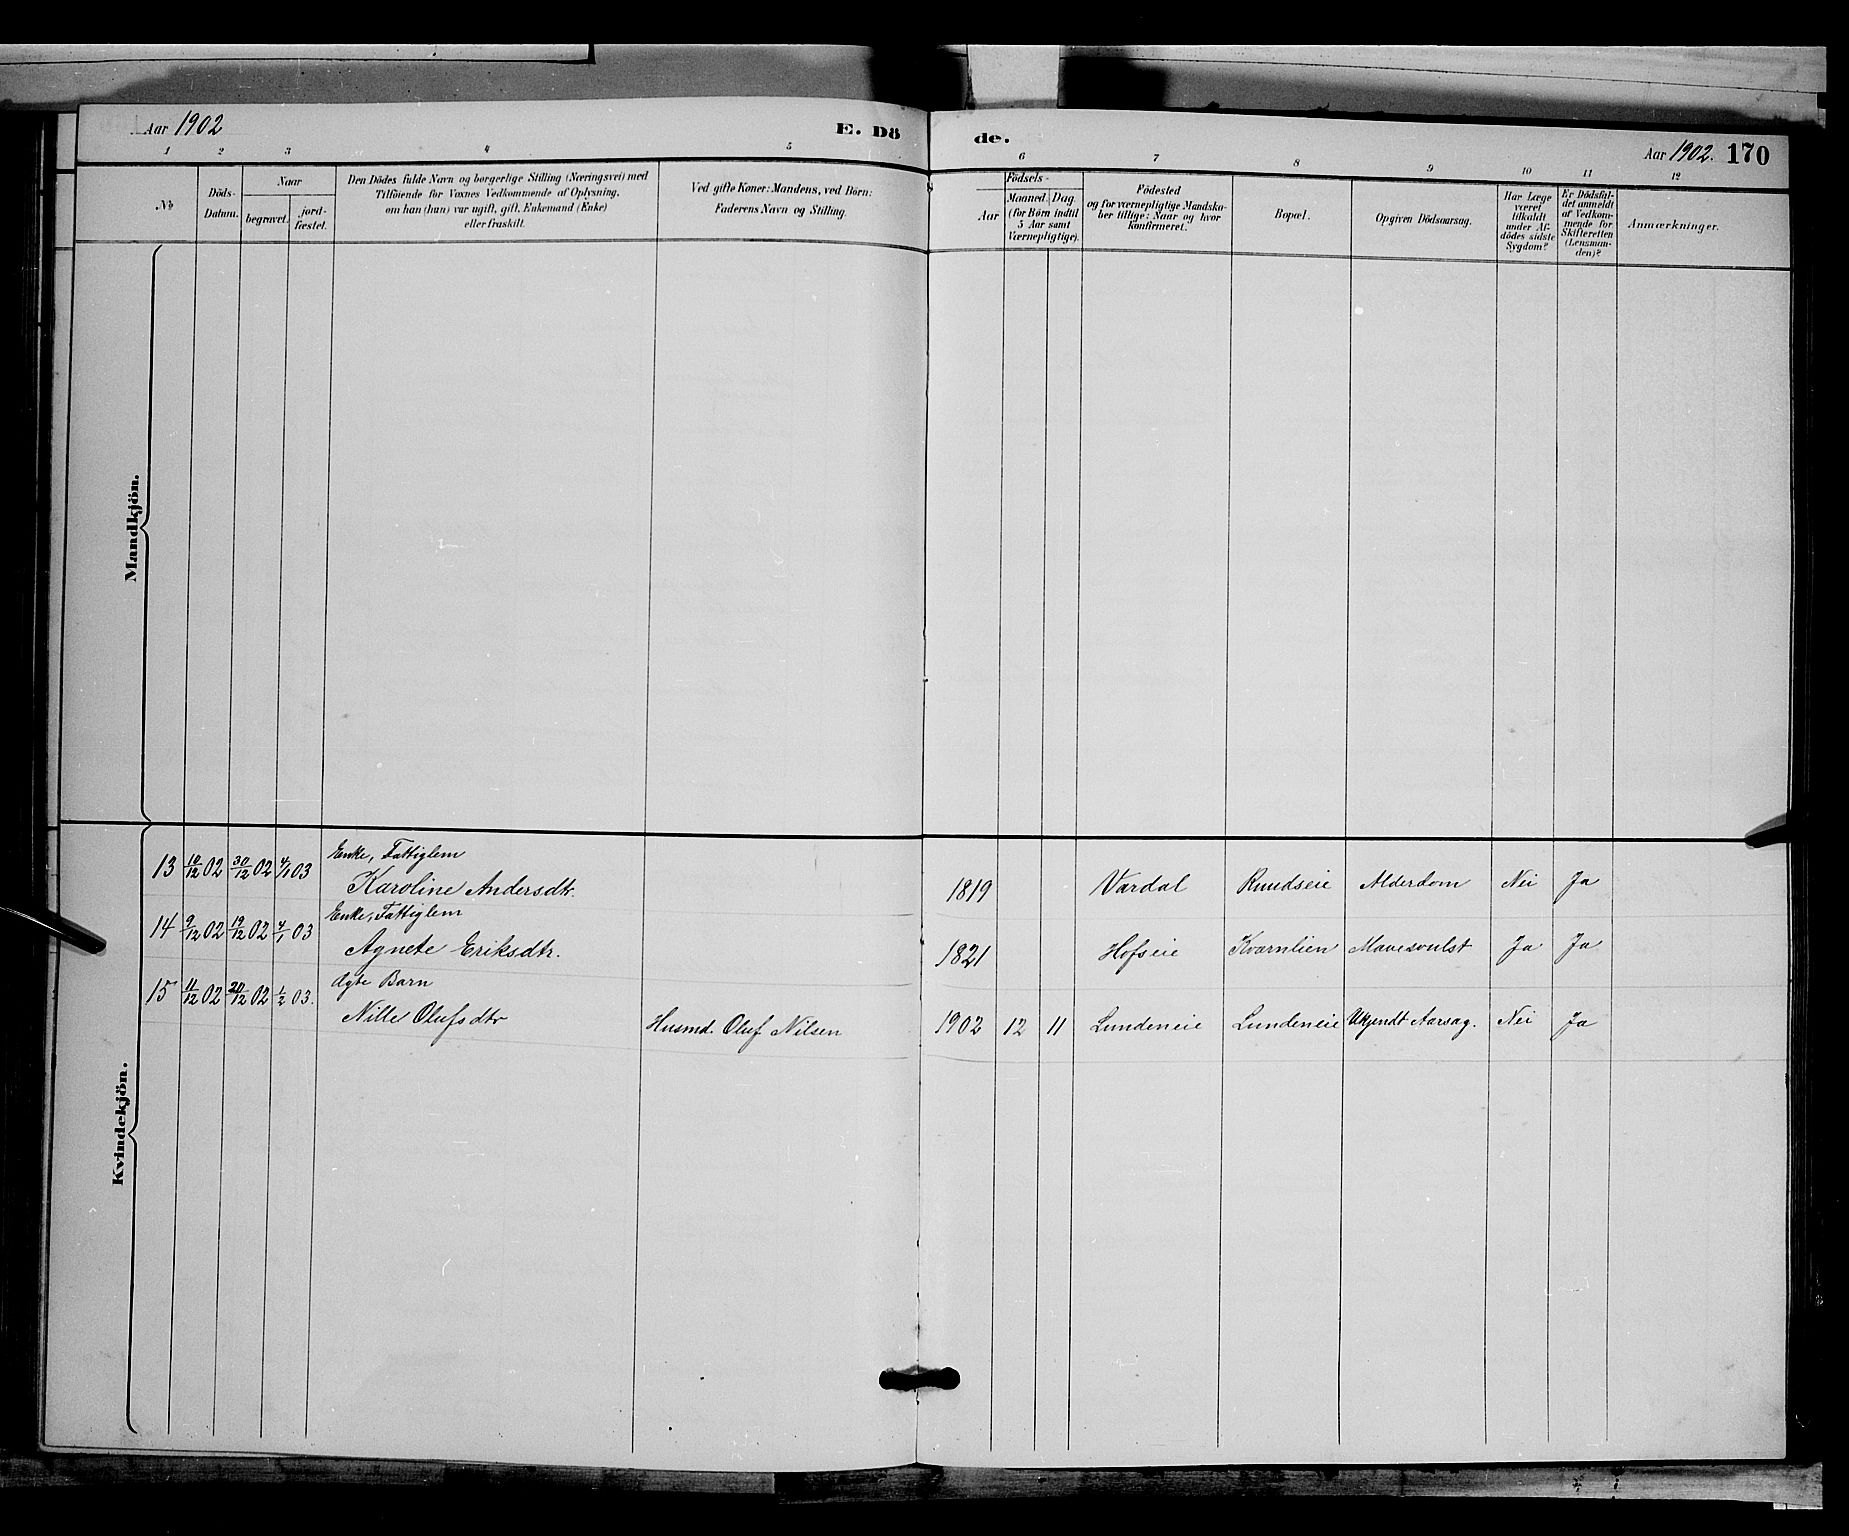 Aar 1902
E. Dö
de.
Aar 1902. 170
1 2 3 4 5 6 7 8 9 10 11 12
No
Döds-
Datum.
Naar
begravet.
jord-
fæstet.
Den Dödes fulde Navn og borgerlige Stilling (Næringsvei) med
Tilföiende for Voxnes Vedkommende af Oplysning,
om han (hun) var ugift, gift, Enkemand (Enke)
eller fraskilt.
Ved gifte Koner: Mandens, ved Börn:
Faderens Navn og Stilling.
Födsels-
Aar
Maaned. Dag.
(for Börn indtil
5 Aar samt
Værnepligtige).
Födested
og for værnepligtige Mandska-
ber tillige: Naar og hvor
konfirmeret.
Bopæl.
Opgiven Dödsaarsag.
Har Læge
været
tilkaldt
under Af-
dödes sidste
Sygdom?
Er Dödsfal-
det anmeldt
af Vedkom-
mende for
Skifteretten
(Lensman-
den)?
Anmærkninger.
Mandkjön.
Kvindekjön.
Enke, Fattiglem
13 10/12 02 30/12 02 4/1 03 Karoline Andersdtr. 1819 Vardal Ruudseie Alderdom Nei Ja
Enke, Fattiglem
14 9/12 02 19/12 02 4/1 03 Agnete Eriksdtr. 1821 Hofseie Kværnlien Mavesvulst Ja Ja
Ægte Barn
15 11/12 02 20/12 02 1/2 03. Nille Olufsdtr Husmd. Oluf Nilsen 1902 12 11 Lundeneie Lundeneie Ukjendt Aarsag. Nei Ja